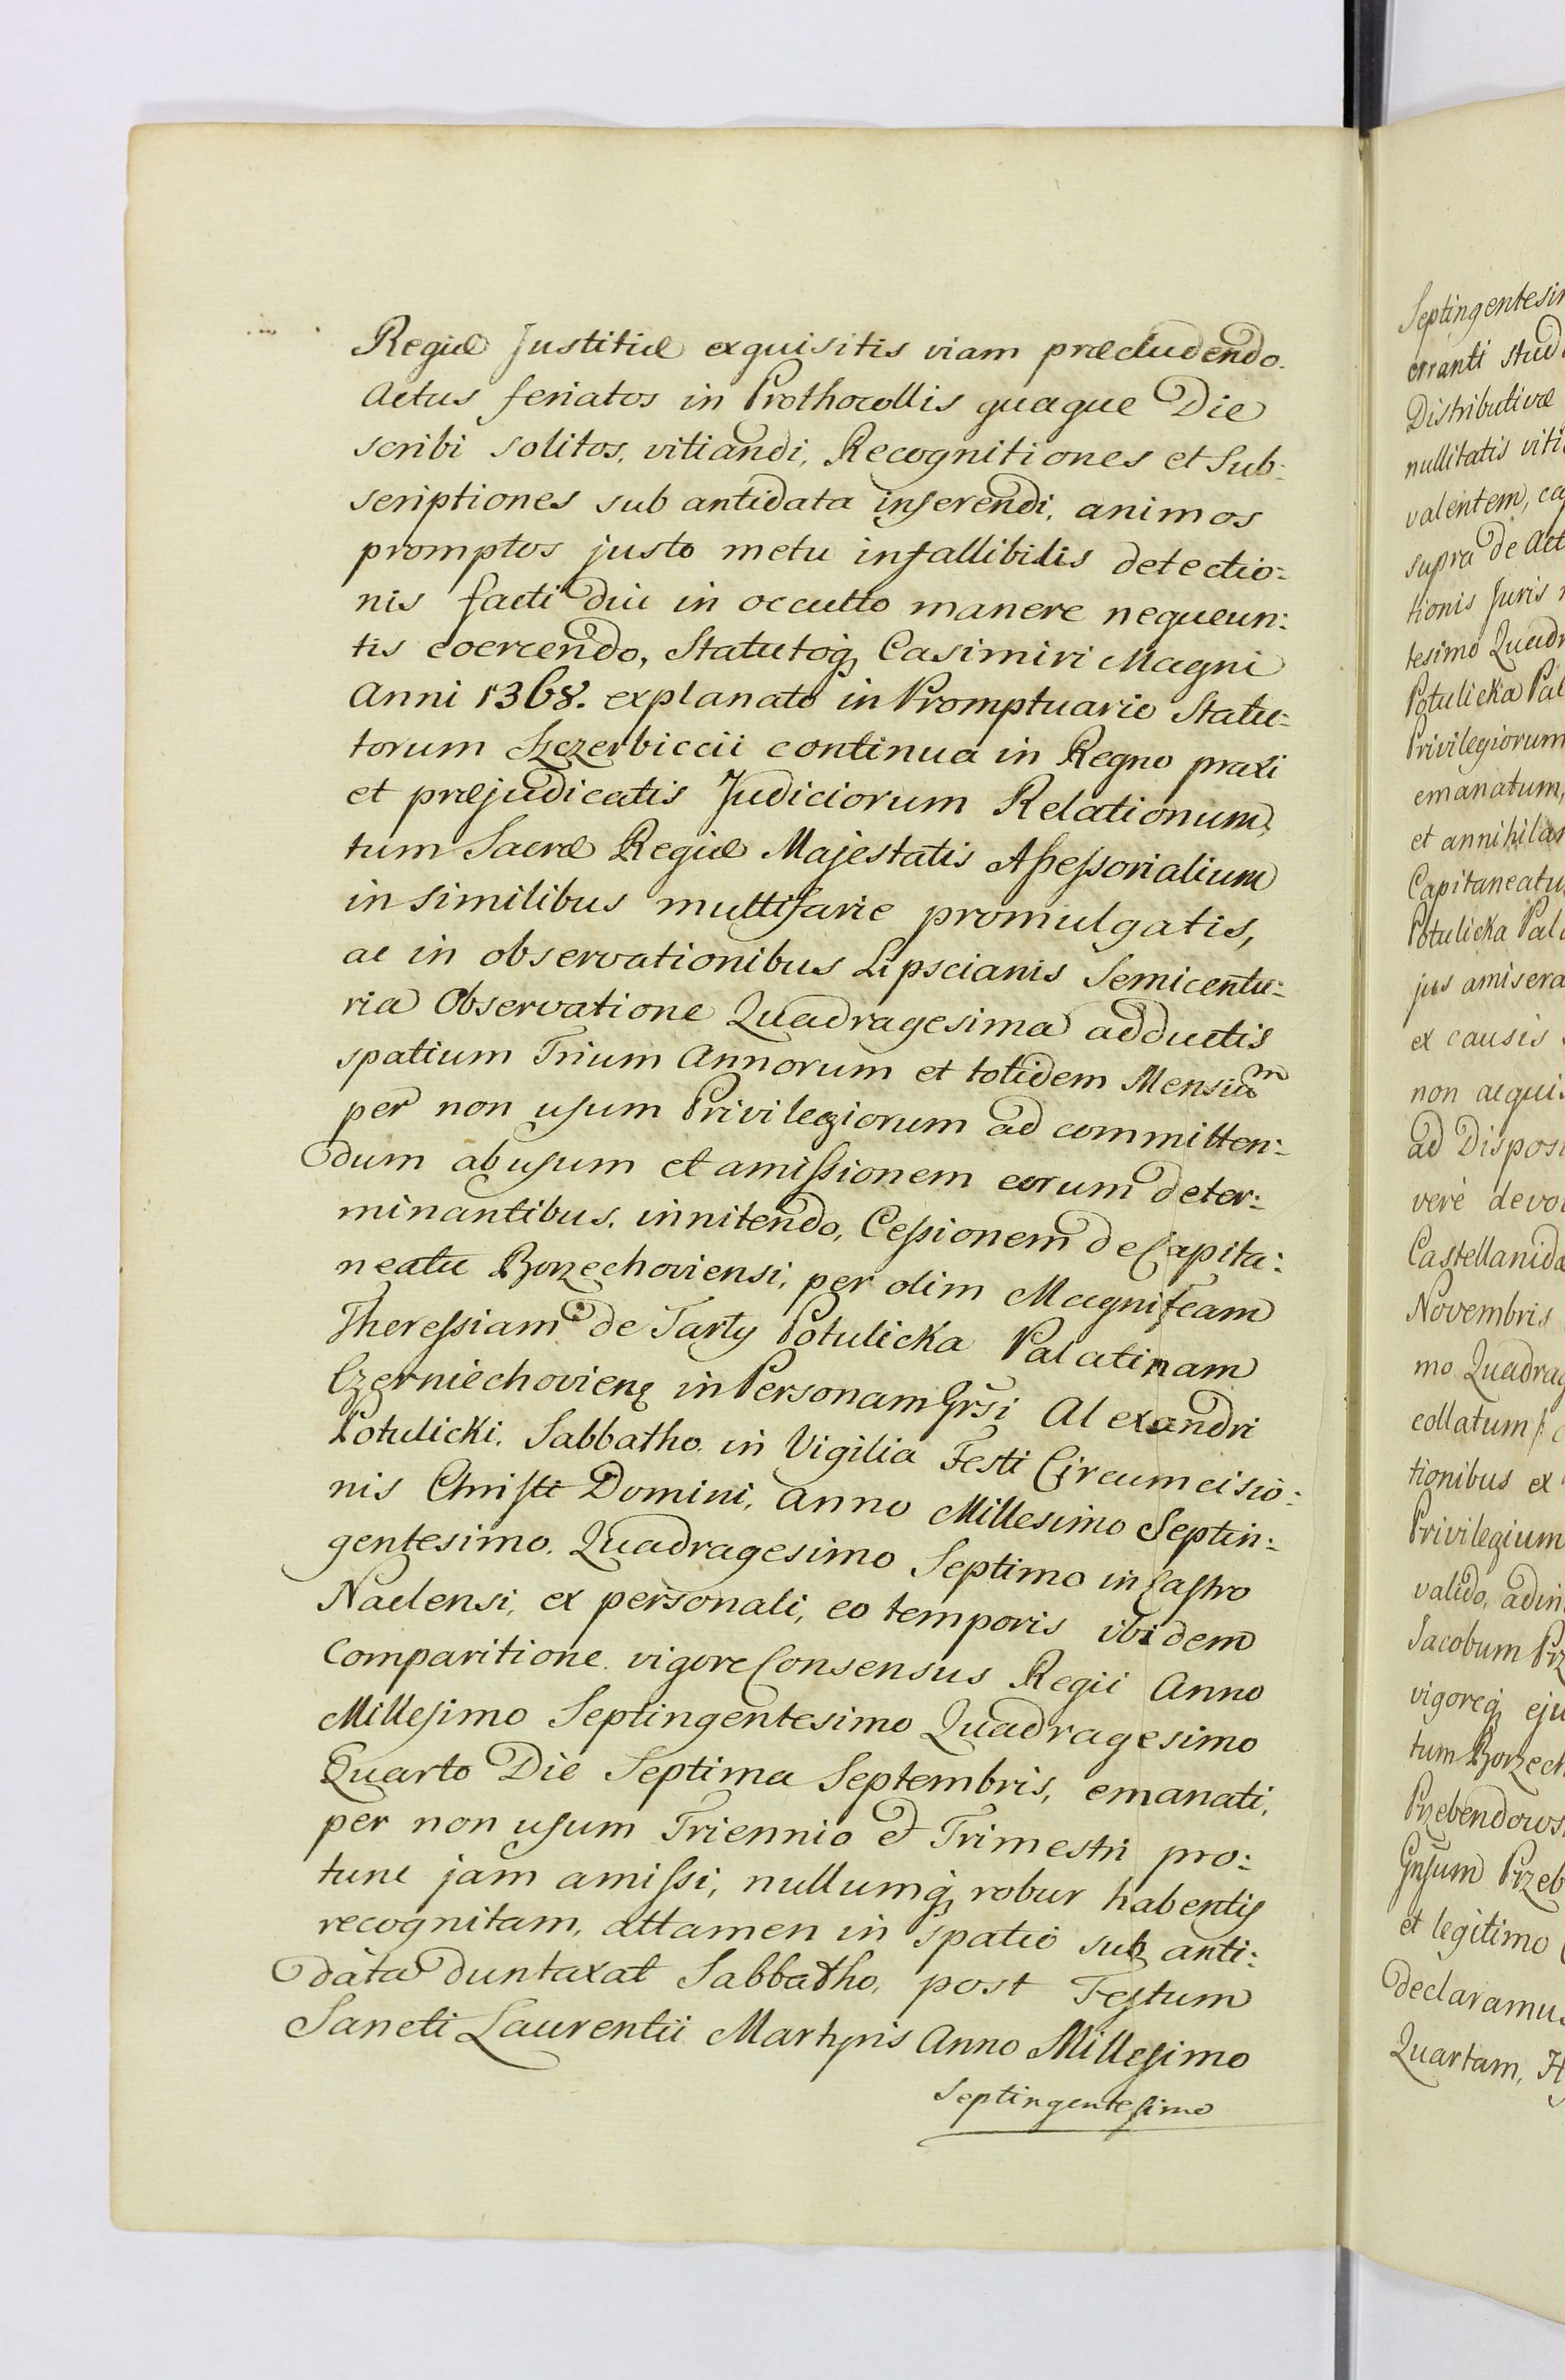 Regiæ Justitiæ exquisitis viam præcludendo.
Actus feriatos in Prothocollis quaque Die
scribi solitos, vitiandi, Recognitiones et Sub:
scriptiones sub antidata inserendi, animos
promptos justo metu infallibilis detectio:
nis facti diu in occulto manere nequeun:
tis coercendo, Statutoq, Casimiri Magni
Anni 1368. explanato in Promptuario Statu:
torum Szczerbiccii continua in Regno praxi
et præjudicatis Judiciorum Relationum,
tum Sacræ Regiæ Majestatis Assessorialium
in similibus multifarie promulgatis,
ac in observationibus Lipscianis Semicentu:
ria Observatione Quadragesima adductis
spatium Trium Annorum et totidem Mensium
per non usum Privilegiorum ad committen:
dum abusum et amissionem eorum deter:
minantibus, innitendo, Cessionem de Capita:
neatu Borzechoviensi, per olim Magnificam
Theressiam de Tarły Potulicka Palatinam
Czerniechovienę in Personam Grsi Alexandri
Potulicki, Sabbatho in Vigilia Festi Circumcisio:
nis Christi Domini, Anno Millesimo Septin:
gentesimo Quadragesimo Septimo in Castro
Naclensi, ex personali, eo temporis ibidem
Comparitione vigore Consensus Regii Anno
Millesimo Septingentesimo Quadragesimo
Quarto Die Septima Septembris, emanati,
per non usum Triennio et Trimestri pro:
tunc jam amissi, nullumq, robur habentis
recognitam, attamen in spatio sub anti:
data duntaxat Sabbatho, post Festum
Sancti Laurentii Martyris Anno Millesimo
Septingentesimo
Septingentesi
erranti stud
Distributivæ
nullitatis viti
valentem, ca
supra de Act
tionis Juris
tesimo Quadr
Potulicka Pal
Privilegiorum
emanatum,
et annihilan
Capitaneatu
Potulicka Pal
jus amisera
ex causis
non acqui
ad Disposi
verè devo
Castellanida
Novembris
mo Quadrag
collatum
tionibus ex
Privilegium
valido, adin
Jacobum Prz
vigoreq, eju
tum Borzech
Przebendows
Gnsum Przeb
et legitimo
declaramus
Quartam, H